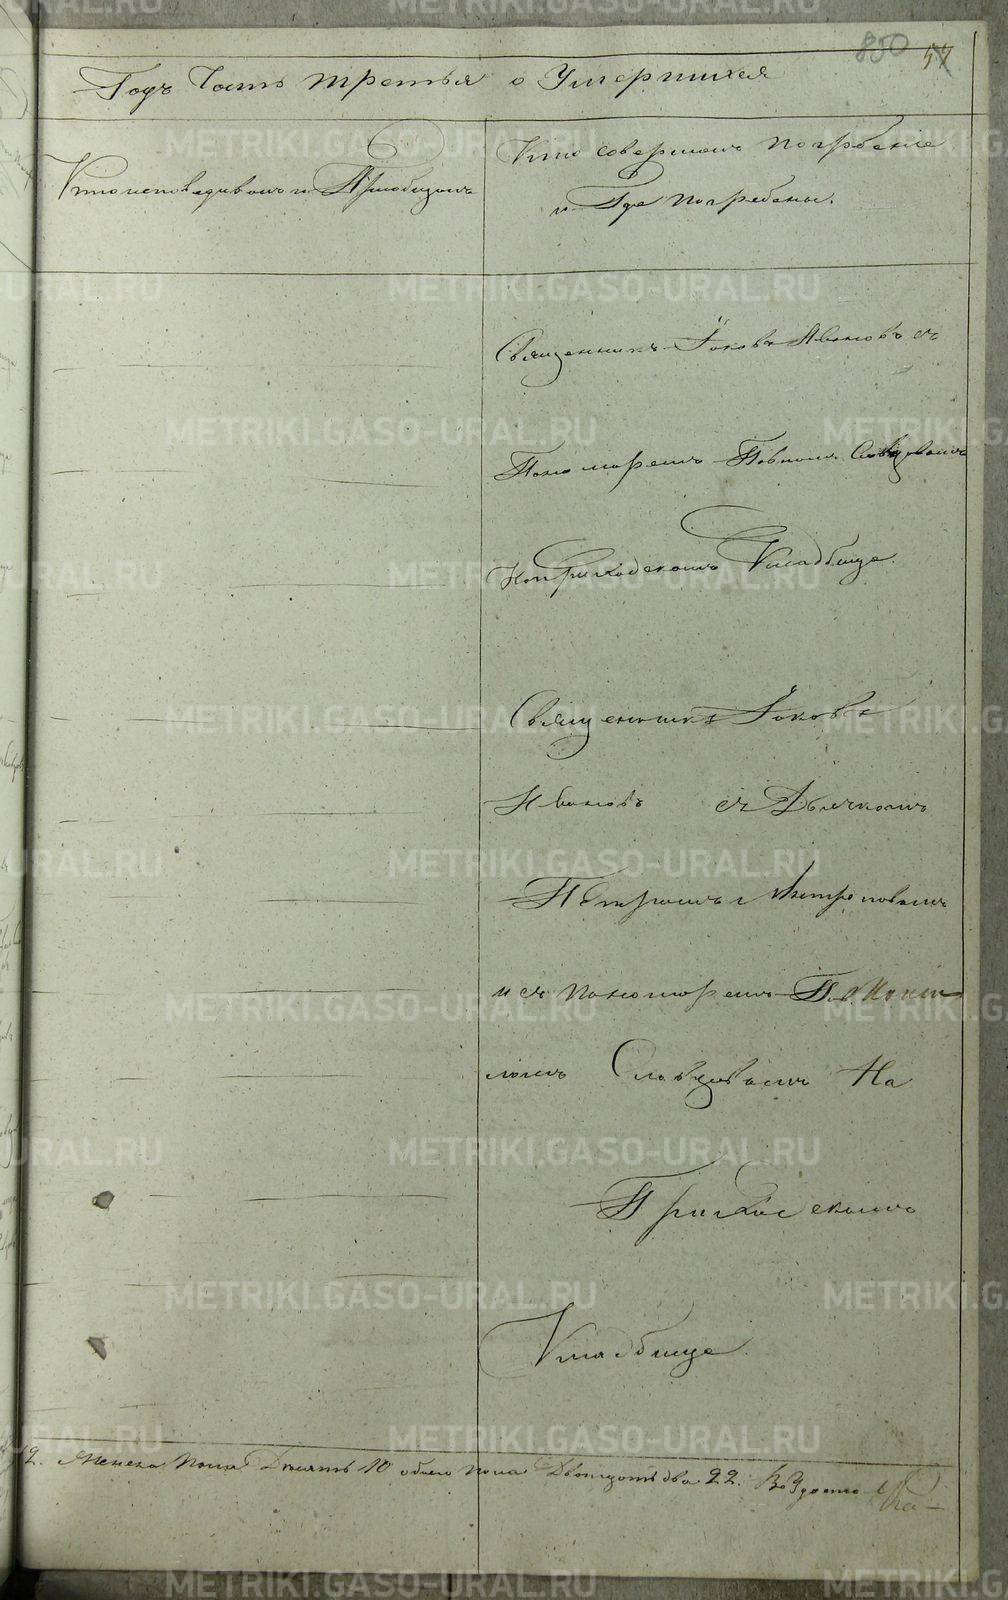 850 57
Годъ Часть третья о Умершихъ
Кто исповедивалъ и Приобщалъ
Кто совершалъ погрбение
и Где погребены.
Священникъ Іаковъ Ивановъ съ
Пономаремъ Павломъ
На Приходскомъ Кладбище
Священникъ Іаковъ
Ивановъ съ Дьячкомъ
Петромъ
и съ пономаремъ
На
Приходскомъ
Кладбище
2. Женска пола Десять 10 обоего пола Двадцать два 22.
METRIKI.GASO-URAL.RU